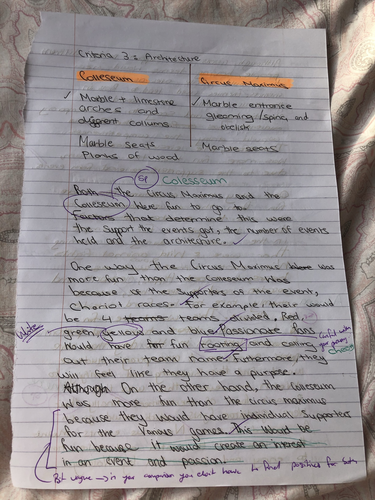 Criteria 3: Architecture
Colleseum
Circus Maximus
✓ Marble + limestone arches and different collums
✓ Marble entrance gleaming/spine, and obelisk
Marble seats
Planks of wood
Marble seats
sp
Colesseum
Both the Circus Maximus and the
Colleseum were fun to go to
Factors that determine this were
the support the events got, the number of events
held and the architecture. ✓
One way the Circus Maximus was
more fun than the colleseum was
because of the supporters in the event,
Chariot races. For example, their would
be 4 teams divided, Red,
White
green, yellow and blue. Passionate fans
would have fun rooting and calling
out their team name. Furthermore, they
will feel like they have a purpose.
On the other hand, the Colleseum
was more fun than the circus maximus
because they would have individual supporters
for the various games. This would be
fun because it would create an interest
in an event and passion.